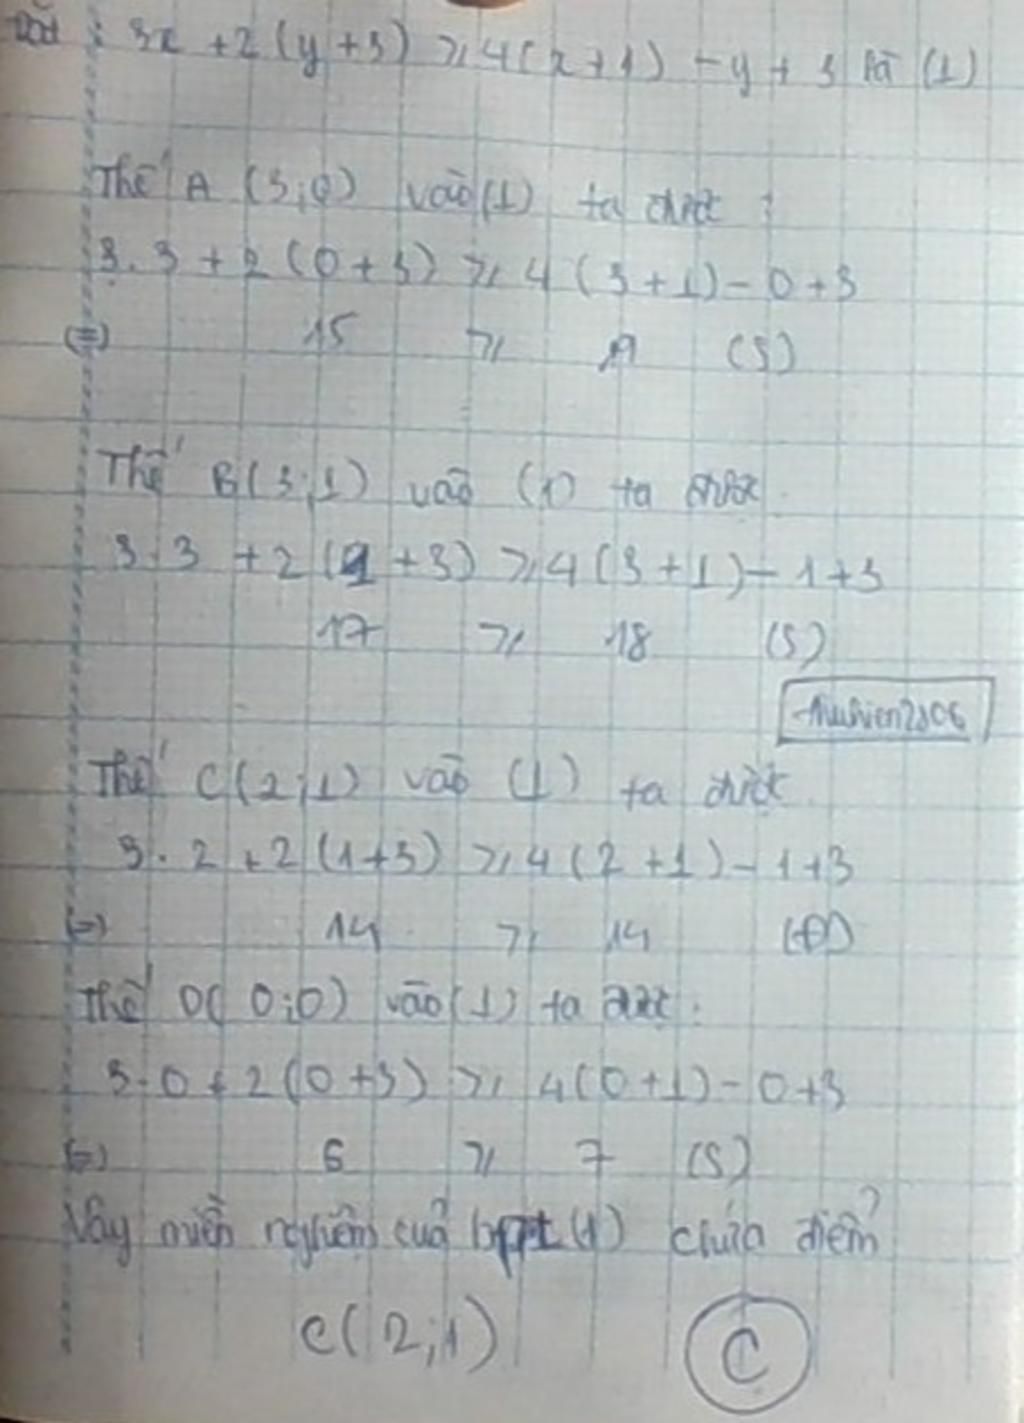 Đặt : 3x + 2(y+3) ⩾ 4(x+1) - y + 3 là (1)
Thế A (3;0) vào (1) ta được :
3.3 + 2(0+3) ⩾ 4(3+1) - 0 + 3
(=) 15 ⩾ 19 (S)
Thế B(3;1) vào (1) ta được.
3.3 + 2(1+3) ⩾ 4(3+1) - 1 + 3
17 ⩾ 18 (S)
thuhien2806
Thế C(2;1) vào (1) ta được
3.2 + 2(1+3) ⩾ 4(2+1) - 1 + 3
(=) 14 ⩾ 14 (Đ)
Thế O(0;0) vào (1) ta được :
3.0 + 2(0+3) ⩾ 4(0+1) - 0 + 3
(=) 6 ⩾ 7 (S)
Vậy miền nghiệm của bpt (1) chứa điểm
C(2;1)
C